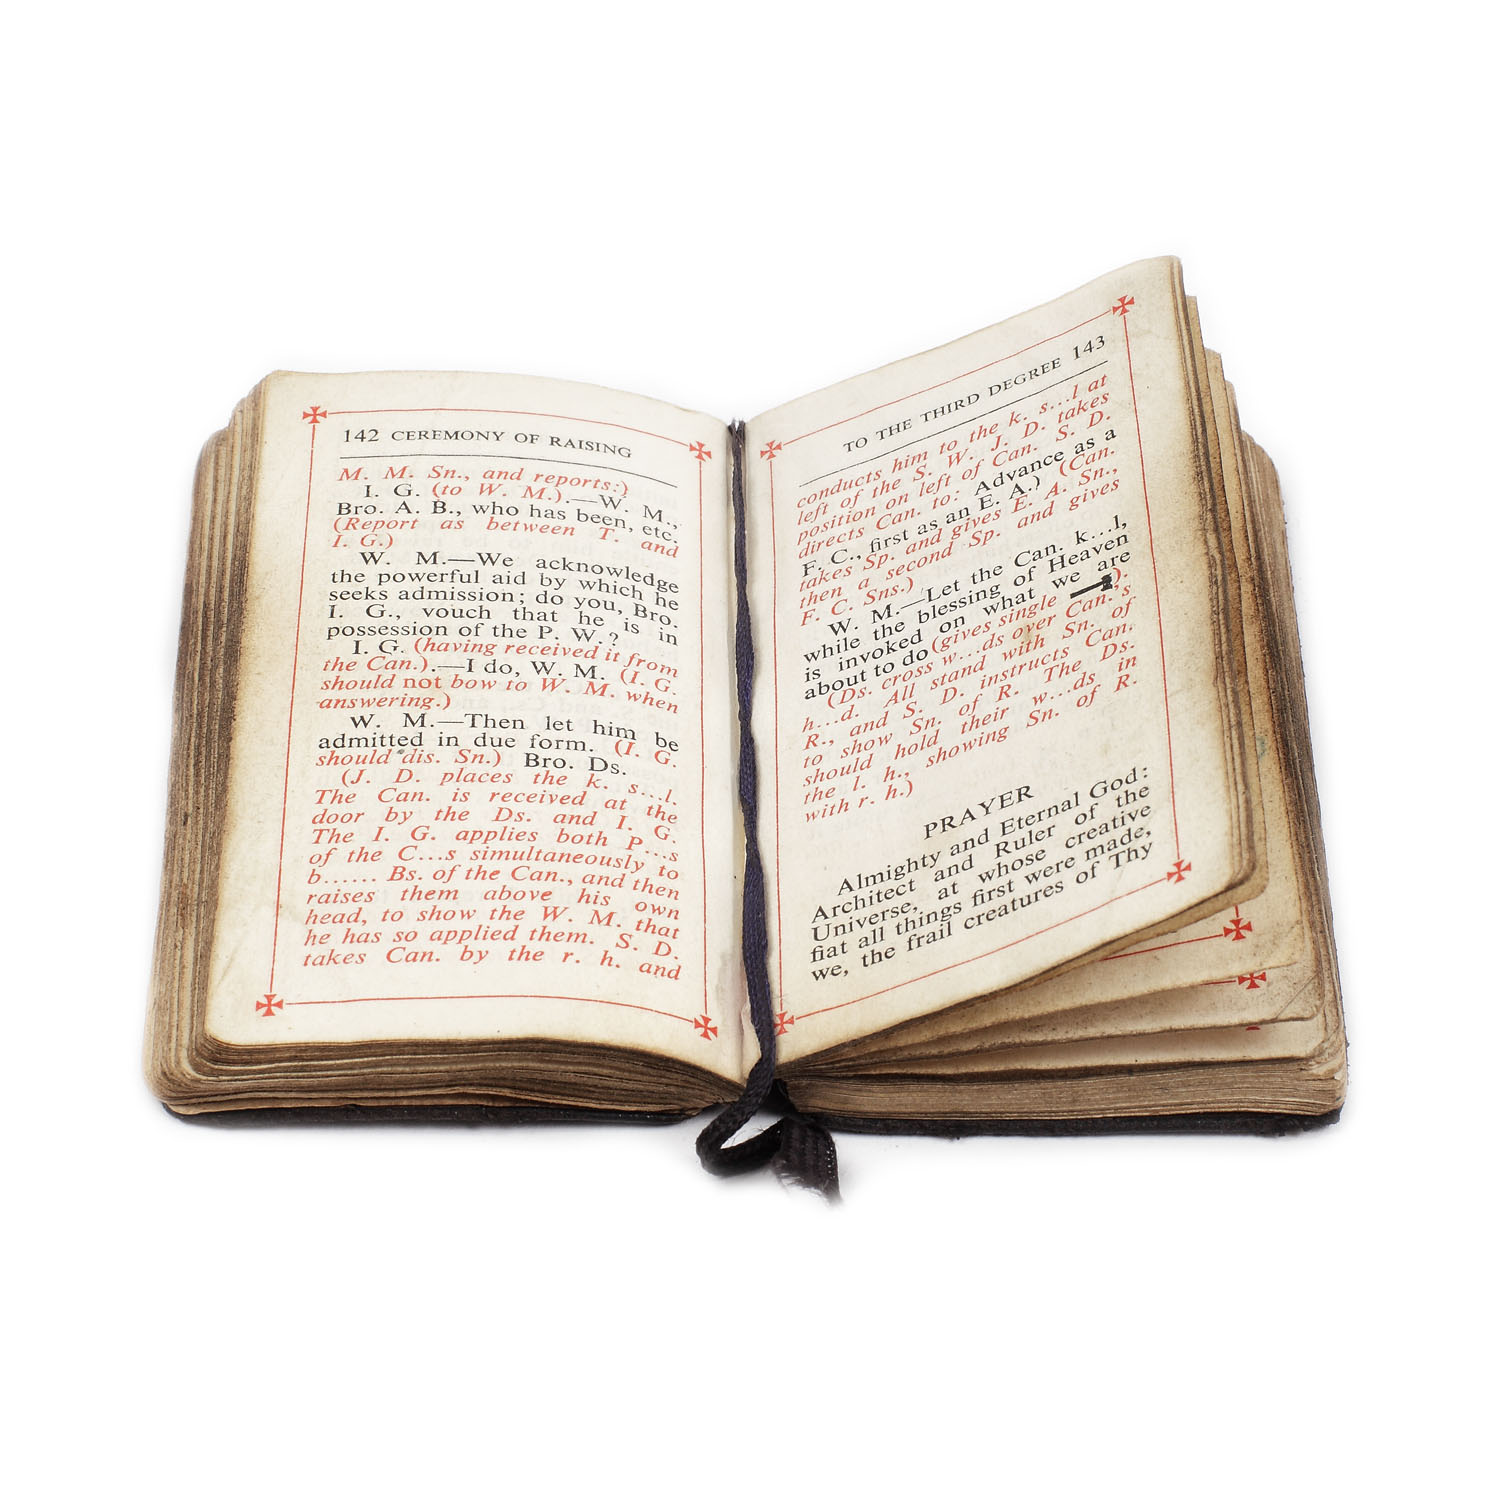 142 CEREMONY OF RAISING
M. M. Sn., and reports:)
I. G. (to W. M.).—W. M.,
Bro. A. B., who has been, etc.
(Report as between T. and
I. G.)
W. M.—We acknowledge
the powerful aid by which he
seeks admission; do you, Bro.
I. G., vouch that he is in
possession of the P. W.?
I. G. (having received it from
the Can.).—I do, W. M. (I. G.
should not bow to W. M. when
answering.)
W. M.—Then let him be
admitted in due form. (I. G.
should dis. Sn.) Bro. Ds.
(J. D. places the k. s...l.
The Can. is received at the
door by the Ds. and I. G.
The I. G. applies both P...s
of the C...s simultaneously to
b...... Bs. of the Can., and then
raises them above his own
head, to show the W. M. that
he has so applied them. S. D.
takes Can. by the r. h. and
TO THE THIRD DEGREE 143
conducts him to the k. s...l at
left of the S. W. J. D. takes
position on left of Can. S. D.
directs Can. to: Advance as a
F. C., first as an E. A.) (Can.
takes Sp. and gives E. A. Sn.,
then a second Sp. and gives
F. C. Sns.)
W. M.—Let the Can. k...l,
while the blessing of Heaven
is invoked on what we are
about to do (gives single ).
(Ds. cross w...ds over Can.'s
h...d. All stand with Sn. of
R., and S. D. instructs Can.
to show Sn. of R. The Ds.
should hold their w...ds in
the l. h., showing Sn. of R.
with r. h.)
PRAYER
Almighty and Eternal God:
Architect and Ruler of the
Universe, at whose creative
fiat all things first were made,
we, the frail creatures of Thy